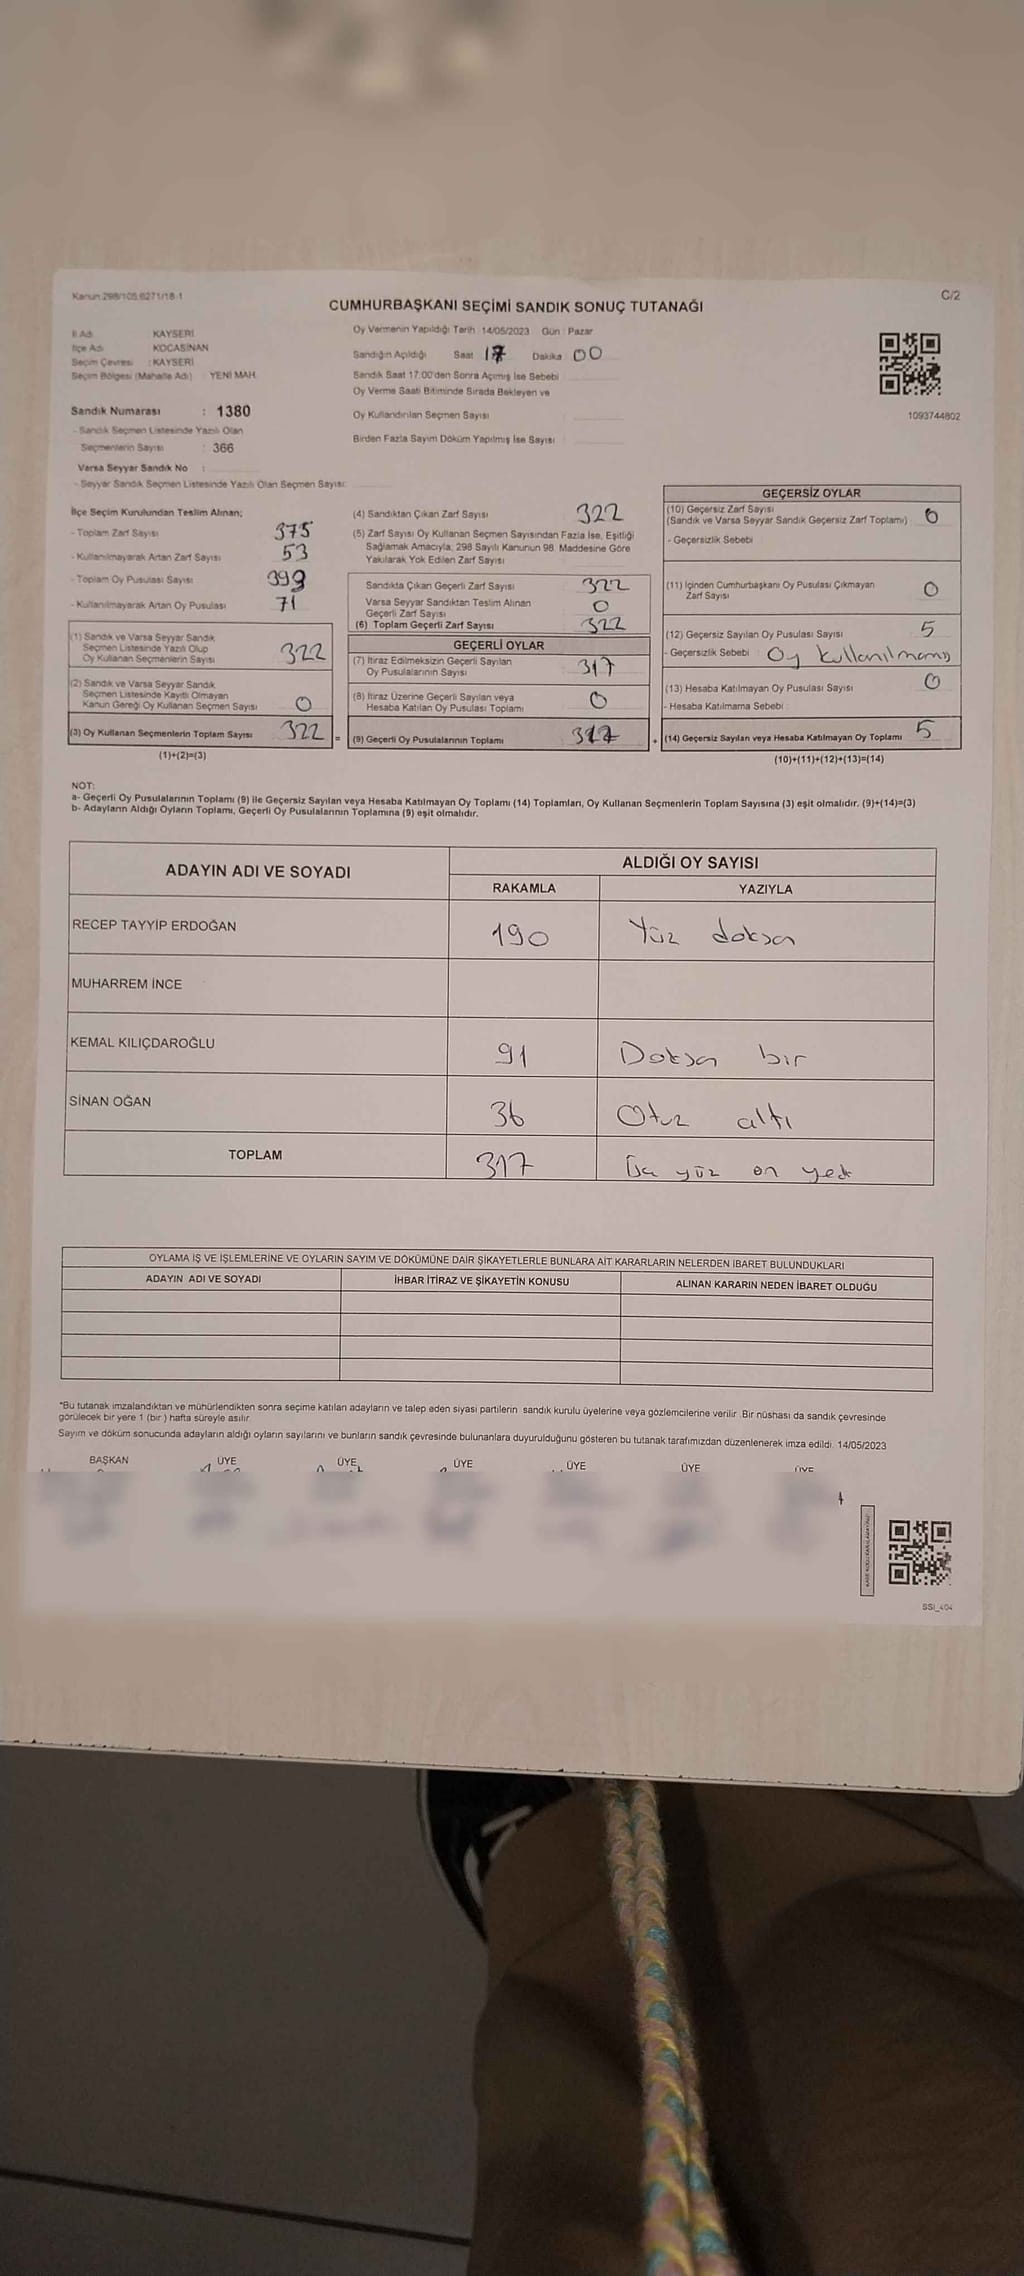 Kanun:298/105.6271/18-1
C/2
CUMHURBAŞKANI SEÇİMİ SANDIK SONUÇ TUTANAĞI
İl Adı KAYSERİ
İlçe Adı KOCASİNAN
Seçim Çevresi : KAYSERİ
Seçim Bölgesi (Mahalle Adı) : YENİ MAH.
Sandık Numarası : 1380
- Sandık Seçmen Listesinde Yazılı Olan
Seçmenlerin Sayısı : 366
Varsa Seyyar Sandık No :
- Seyyar Sandık Seçmen Listesinde Yazılı Olan Seçmen Sayısı:
Oy Vermenin Yapıldığı Tarih : 14/05/2023 Gün : Pazar
Sandığın Açıldığı Saat 17 Dakika 00
Sandık Saat 17:00'den Sonra Açımış İse Sebebi
Oy Verme Saati Bitiminde Sırada Bekleyen ve
Oy Kullandırılan Seçmen Sayısı
Birden Fazla Sayım Döküm Yapılmış İse Sayısı
1093744802
İlçe Seçim Kurulundan Teslim Alınan;
- Toplam Zarf Sayısı 375
- Kullanılmayarak Artan Zarf Sayısı 53
- Toplam Oy Pusulası Sayısı 399
- Kullanılmayarak Artan Oy Pusulası 71
(1) Sandık ve Varsa Seyyar Sandık
Seçmen Listesinde Yazılı Olup
Oy Kullanan Seçmenlerin Sayısı 322
(2) Sandık ve Varsa Seyyar Sandık
Seçmen Listesinde Kayıtlı Olmayan
Kanun Gereği Oy Kullanan Seçmen Sayısı 0
(3) Oy Kullanan Seçmenlerin Toplam Sayısı 322 =
(1)+(2)=(3)
(4) Sandıktan Çıkan Zarf Sayısı 322
(5) Zarf Sayısı Oy Kullanan Seçmen Sayısından Fazla İse, Eşitliği
Sağlamak Amacıyla, 298 Sayılı Kanunun 98. Maddesine Göre
Yakılarak Yok Edilen Zarf Sayısı
Sandıkta Çıkan Geçerli Zarf Sayısı 322
Varsa Seyyar Sandıktan Teslim Alınan
Geçerli Zarf Sayısı 0
(6) Toplam Geçerli Zarf Sayısı 322
GEÇERLİ OYLAR
(7) İtiraz Edilmeksizin Geçerli Sayılan
Oy Pusulalarının Sayısı 317
(8) İtiraz Üzerine Geçerli Sayılan veya
Hesaba Katılan Oy Pusulası Toplamı 0
(9) Geçerli Oy Pusulalarının Toplamı 317 +
GEÇERSİZ OYLAR
(10) Geçersiz Zarf Sayısı
(Sandık ve Varsa Seyyar Sandık Geçersiz Zarf Toplamı) 0
- Geçersizlik Sebebi
(11) İçinden Cumhurbaşkanı Oy Pusulası Çıkmayan
Zarf Sayısı 0
(12) Geçersiz Sayılan Oy Pusulası Sayısı 5
- Geçersizlik Sebebi : Oy kullanılmamış
(13) Hesaba Katılmayan Oy Pusulası Sayısı 0
- Hesaba Katılmama Sebebi :
(14) Geçersiz Sayılan veya Hesaba Katılmayan Oy Toplamı 5
(10)+(11)+(12)+(13)=(14)
NOT:
a- Geçerli Oy Pusulalarının Toplamı (9) ile Geçersiz Sayılan veya Hesaba Katılmayan Oy Toplamı (14) Toplamları, Oy Kullanan Seçmenlerin Toplam Sayısına (3) eşit olmalıdır. (9)+(14)=(3)
b- Adayların Aldığı Oyların Toplamı, Geçerli Oy Pusulalarının Toplamına (9) eşit olmalıdır.
ADAYIN ADI VE SOYADI
ALDIĞI OY SAYISI
RAKAMLA YAZIYLA
RECEP TAYYİP ERDOĞAN 190 Yüz doksan
MUHARREM İNCE
KEMAL KILIÇDAROĞLU 91 Doksan bir
SİNAN OĞAN 36 Otuz altı
TOPLAM 317 Üç yüz on yedi
OYLAMA İŞ VE İŞLEMLERİNE VE OYLARIN SAYIM VE DÖKÜMÜNE DAİR ŞİKAYETLERLE BUNLARA AİT KARARLARIN NELERDEN İBARET BULUNDUKLARI
ADAYIN ADI VE SOYADI İHBAR İTİRAZ VE ŞİKAYETİN KONUSU ALINAN KARARIN NEDEN İBARET OLDUĞU
*Bu tutanak imzalandıktan ve mühürlendikten sonra seçime katılan adayların ve talep eden siyasi partilerin sandık kurulu üyelerine veya gözlemcilerine verilir. Bir nüshası da sandık çevresinde
görülecek bir yere 1 (bir ) hafta süreyle asılır.
Sayım ve döküm sonucunda adayların aldığı oyların sayılarını ve bunların sandık çevresinde bulunanlara duyurulduğunu gösteren bu tutanak tarafımızdan düzenlenerek imza edildi. 14/05/2023
BAŞKAN ÜYE ÜYE ÜYE ÜYE ÜYE ÜYE
SSI_404